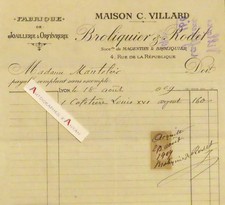 FABRIQUE
DE
JOAILLERIE & ORFÈVRERIE
MAISON C. VILLARD
Broliquier & Rodet
SUCCrs DE MAGENTIES &
4, RUE DE LA RÉPUBLIQUE
Madame Doit
payable comptant sans escompte.
Lyon le 18 août 1909
1 Cafetière Louis XVI argent 160
Acquitté
août
1909
Broliquier & Rodet